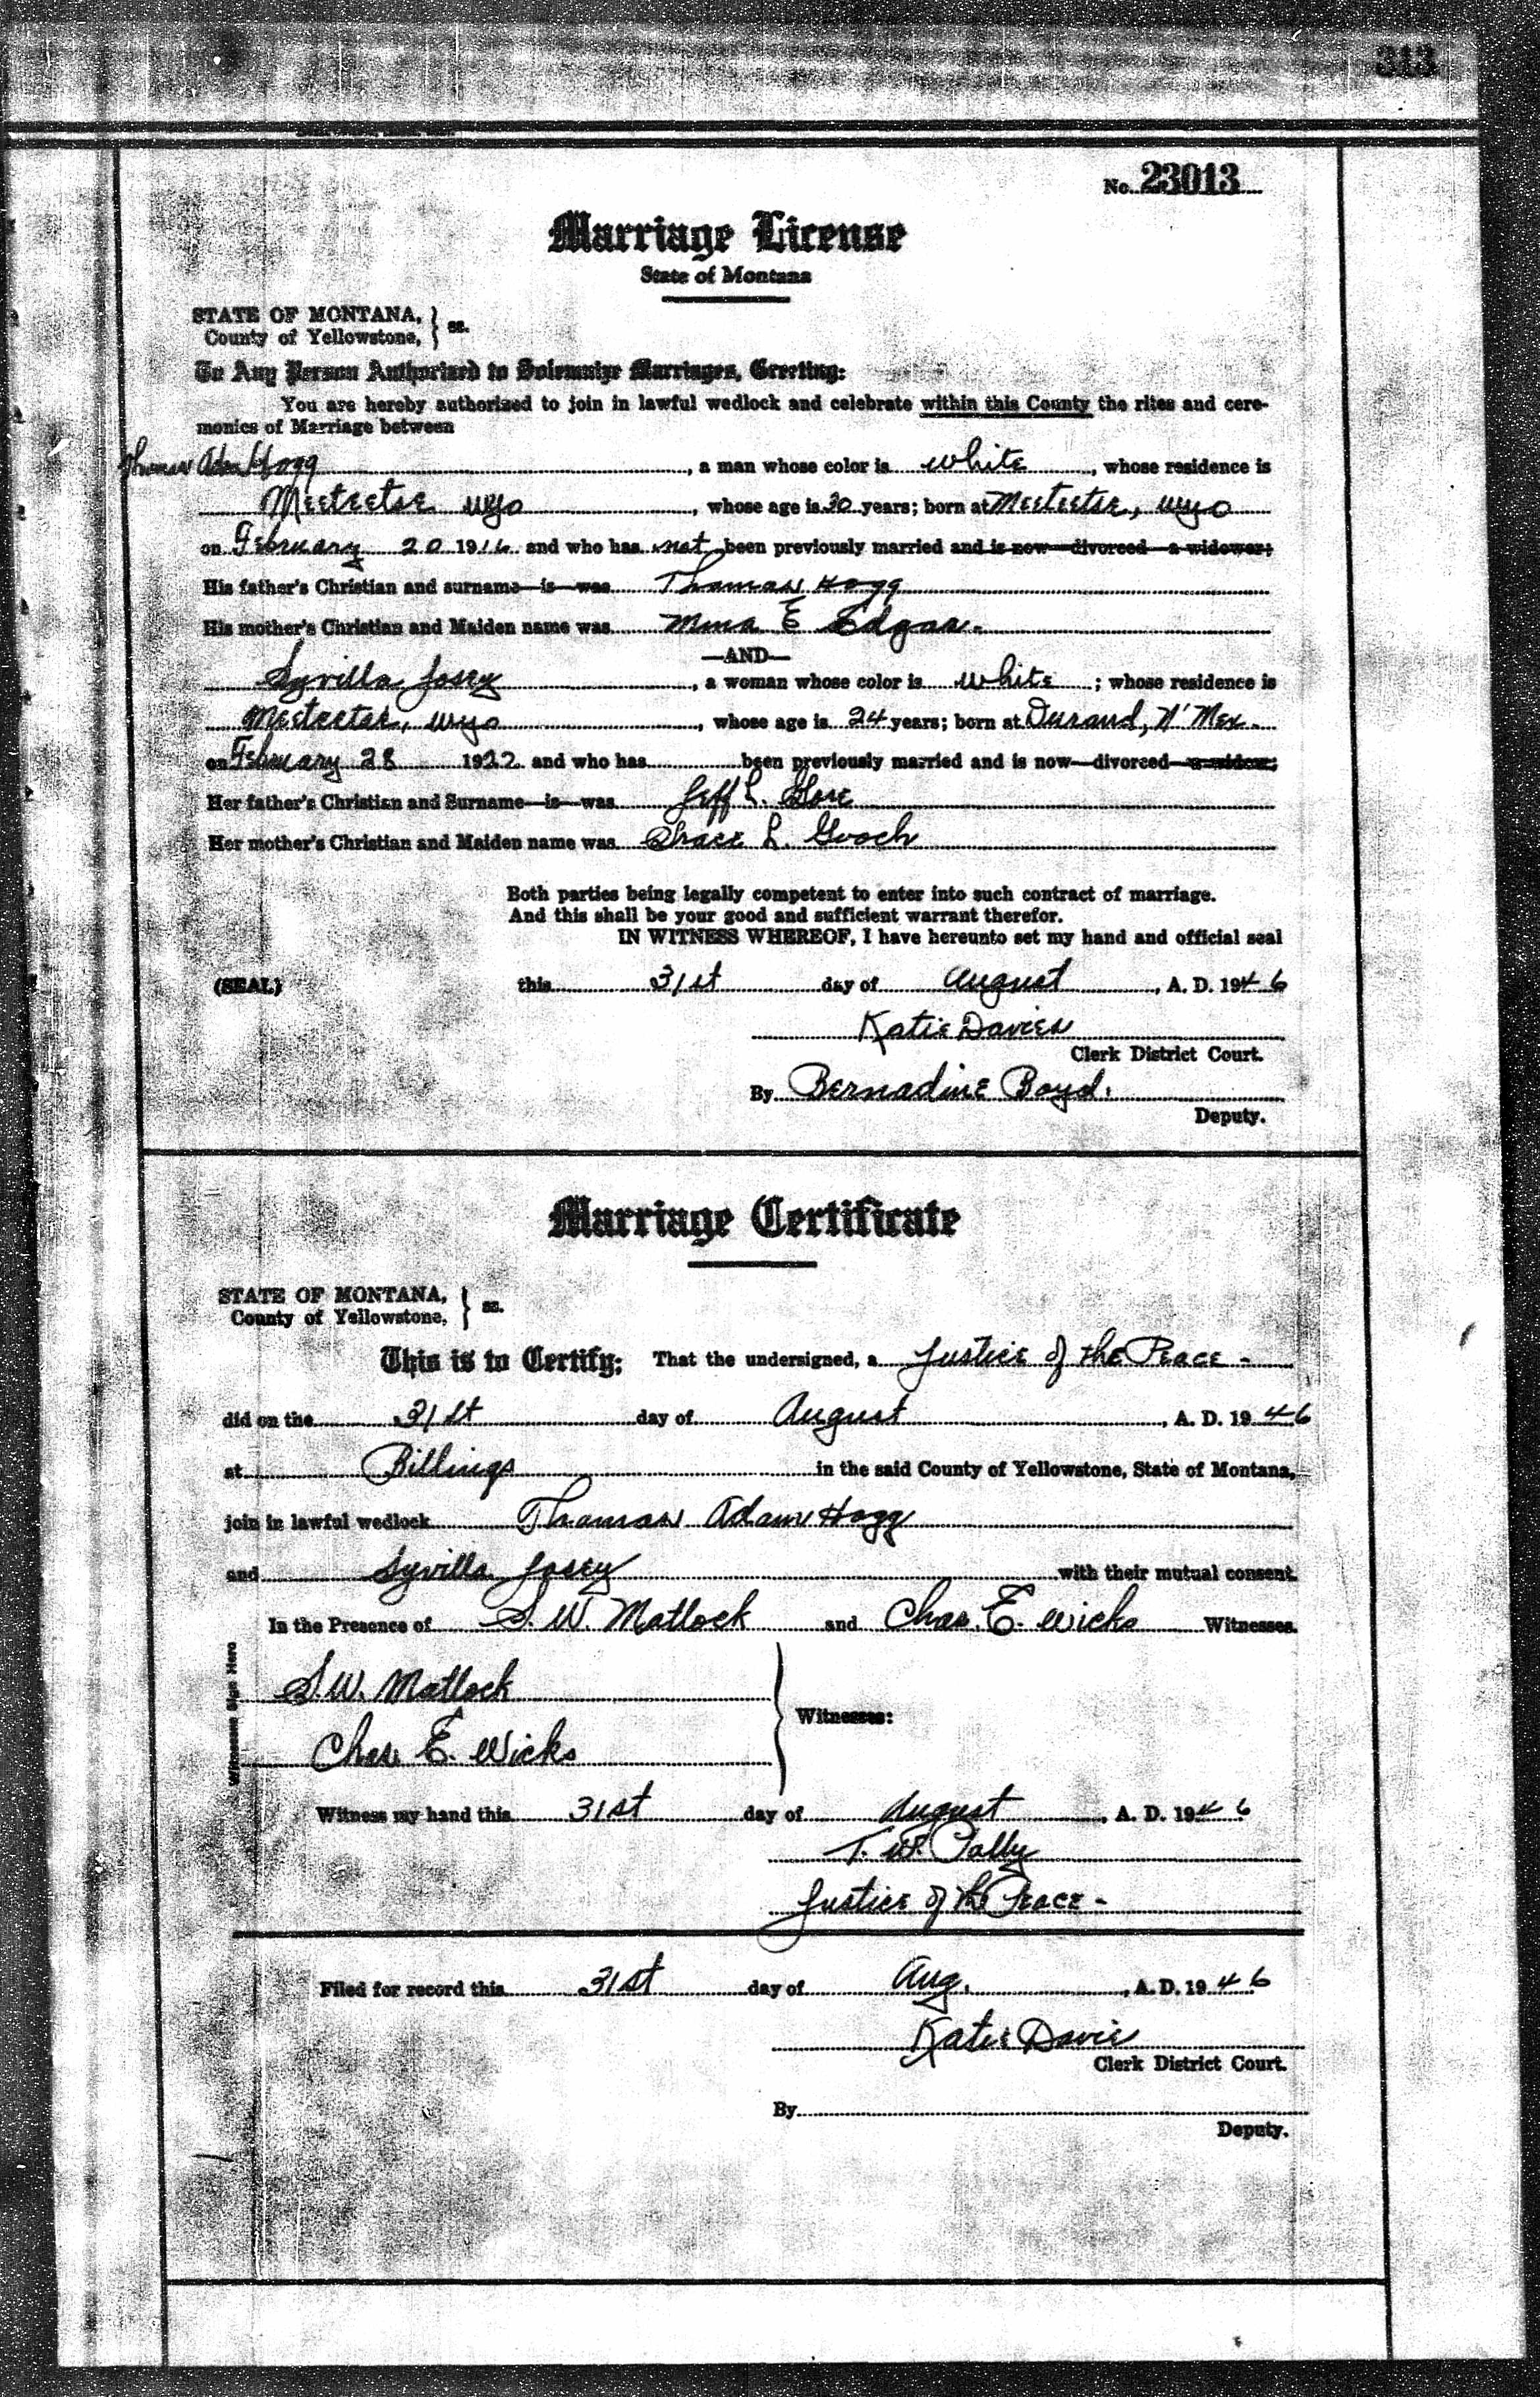 313
No. 23013
Marriage License
State of Montana
STATE OF MONTANA,
County of Yellowstone, } ss.
To Any Person Authorized to Solemnize Marriages, Greeting:
You are hereby authorized to join in lawful wedlock and celebrate within this County the rites and cere-
monies of Marriage between
Thomas Adam Hogg, a man whose color is white, whose residence is
Meeteetse Wyo, whose age is 30 years; born at Meeteetse, Wyo
on February 20 1916 and who has not been previously married and is now—divorced—a widower;
His father's Christian and surname—is—was Thomas Hogg
His mother's Christian and Maiden name was Mina E Edgar.
—AND—
Syvilla Josey, a woman whose color is white; whose residence is
Meeteetse, Wyo, whose age is 24 years; born at Durand, N' Mex.
on February 28 1922 and who has been previously married and is now—divorced—a widow;
Her father's Christian and Surname—is—was Jeff L. Gore
Her mother's Christian and Maiden name was Grace L. Gooch
Both parties being legally competent to enter into such contract of marriage.
And this shall be your good and sufficient warrant therefor.
IN WITNESS WHEREOF, I have hereunto set my hand and official seal
(SEAL) this 31st day of August, A. D. 1946
Katie Davies
Clerk District Court.
By Bernadine Boyd.
Deputy.
Marriage Certificate
STATE OF MONTANA,
County of Yellowstone, } ss.
This is to Certify; That the undersigned, a Justice of the Peace -
did on the 31st day of August, A. D. 1946
at Billings in the said County of Yellowstone, State of Montana,
join in lawful wedlock Thomas Adam Hogg
and Syvilla Josey with their mutual consent.
In the Presence of S. W. Matlock and Chas. E. Wicks Witnesses.
Witnesses Sign Here
S. W. Matlock
Witnesses:
Chas. E. Wicks
Witness my hand this 31st day of August, A. D. 1946
Justice of the Peace -
Filed for record this 31st day of Aug., A. D. 1946
Katie Davis
Clerk District Court.
By
Deputy.